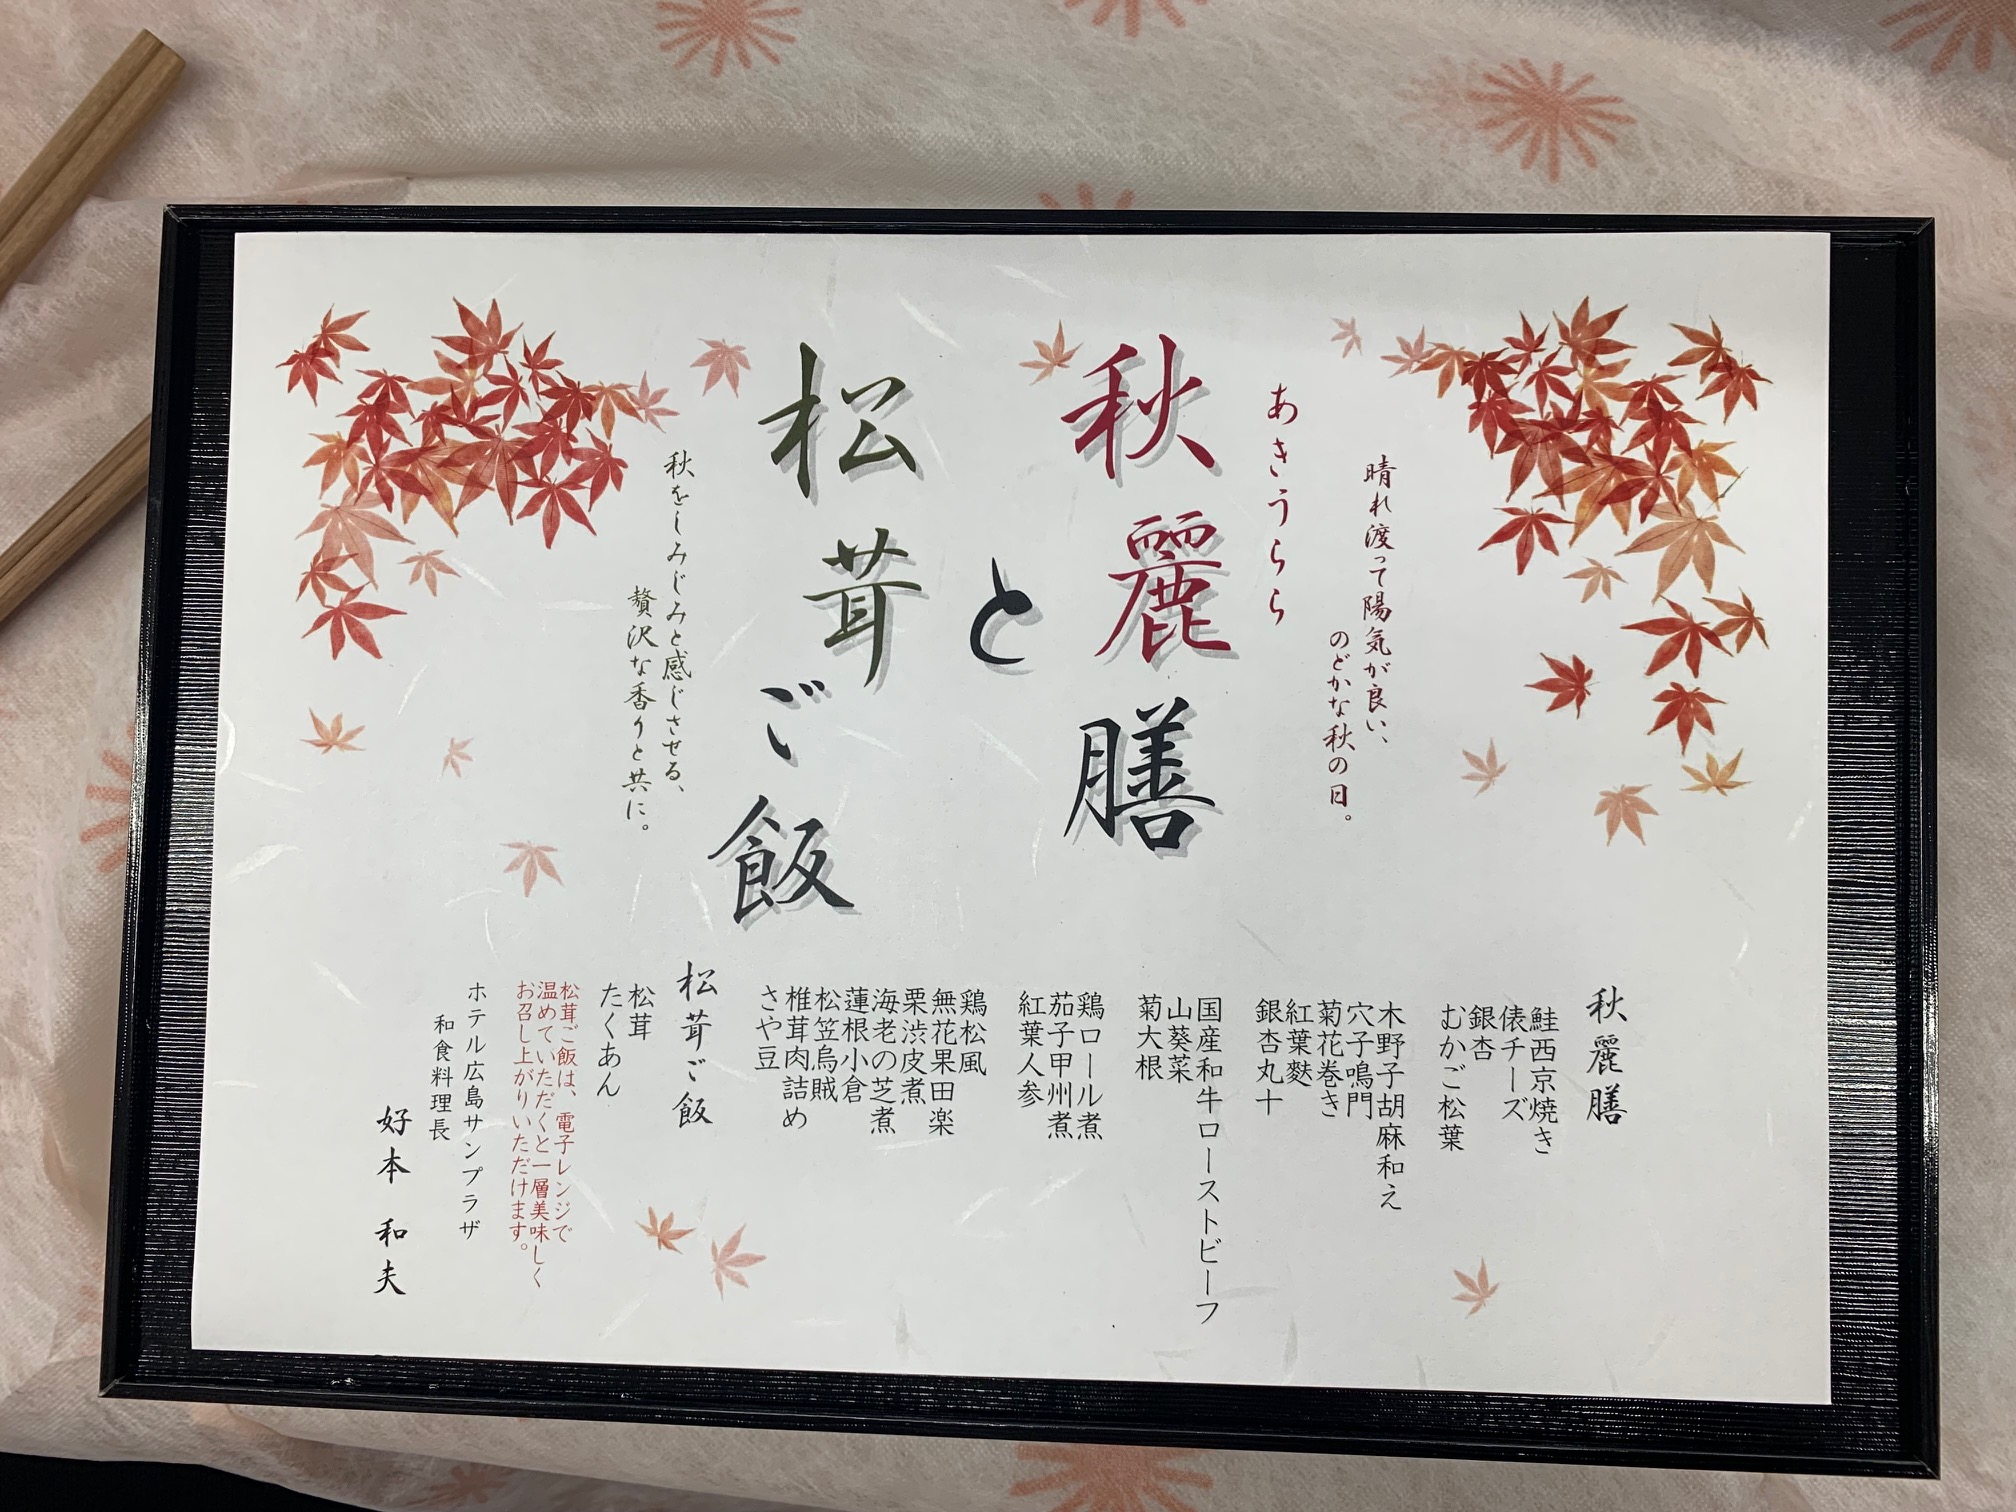 晴れ渡って陽気が良い、
のどかな秋の日。
あきうらら
秋麗膳
と
松茸ご飯
秋をしみじみと感じさせる、
贅沢な香りと共に。
秋麗膳
鮭西京焼き
俵チーズ
銀杏
むかご松葉
木野子胡麻和え
穴子鳴門
菊花巻き
紅葉麩
銀杏丸十
国産和牛ローストビーフ
山葵菜
菊大根
鶏ロール煮
茄子甲州煮
紅葉人参
鶏松風
無花果田楽
栗渋皮煮
海老の芝煮
蓮根小倉
松笠烏賊
椎茸肉詰め
さや豆
松茸ご飯
松茸
たくあん
松茸ご飯は、電子レンジで
温めていただくと一層美味しく
お召し上がりいただけます。
ホテル広島サンプラザ
和食料理長
好本 和夫